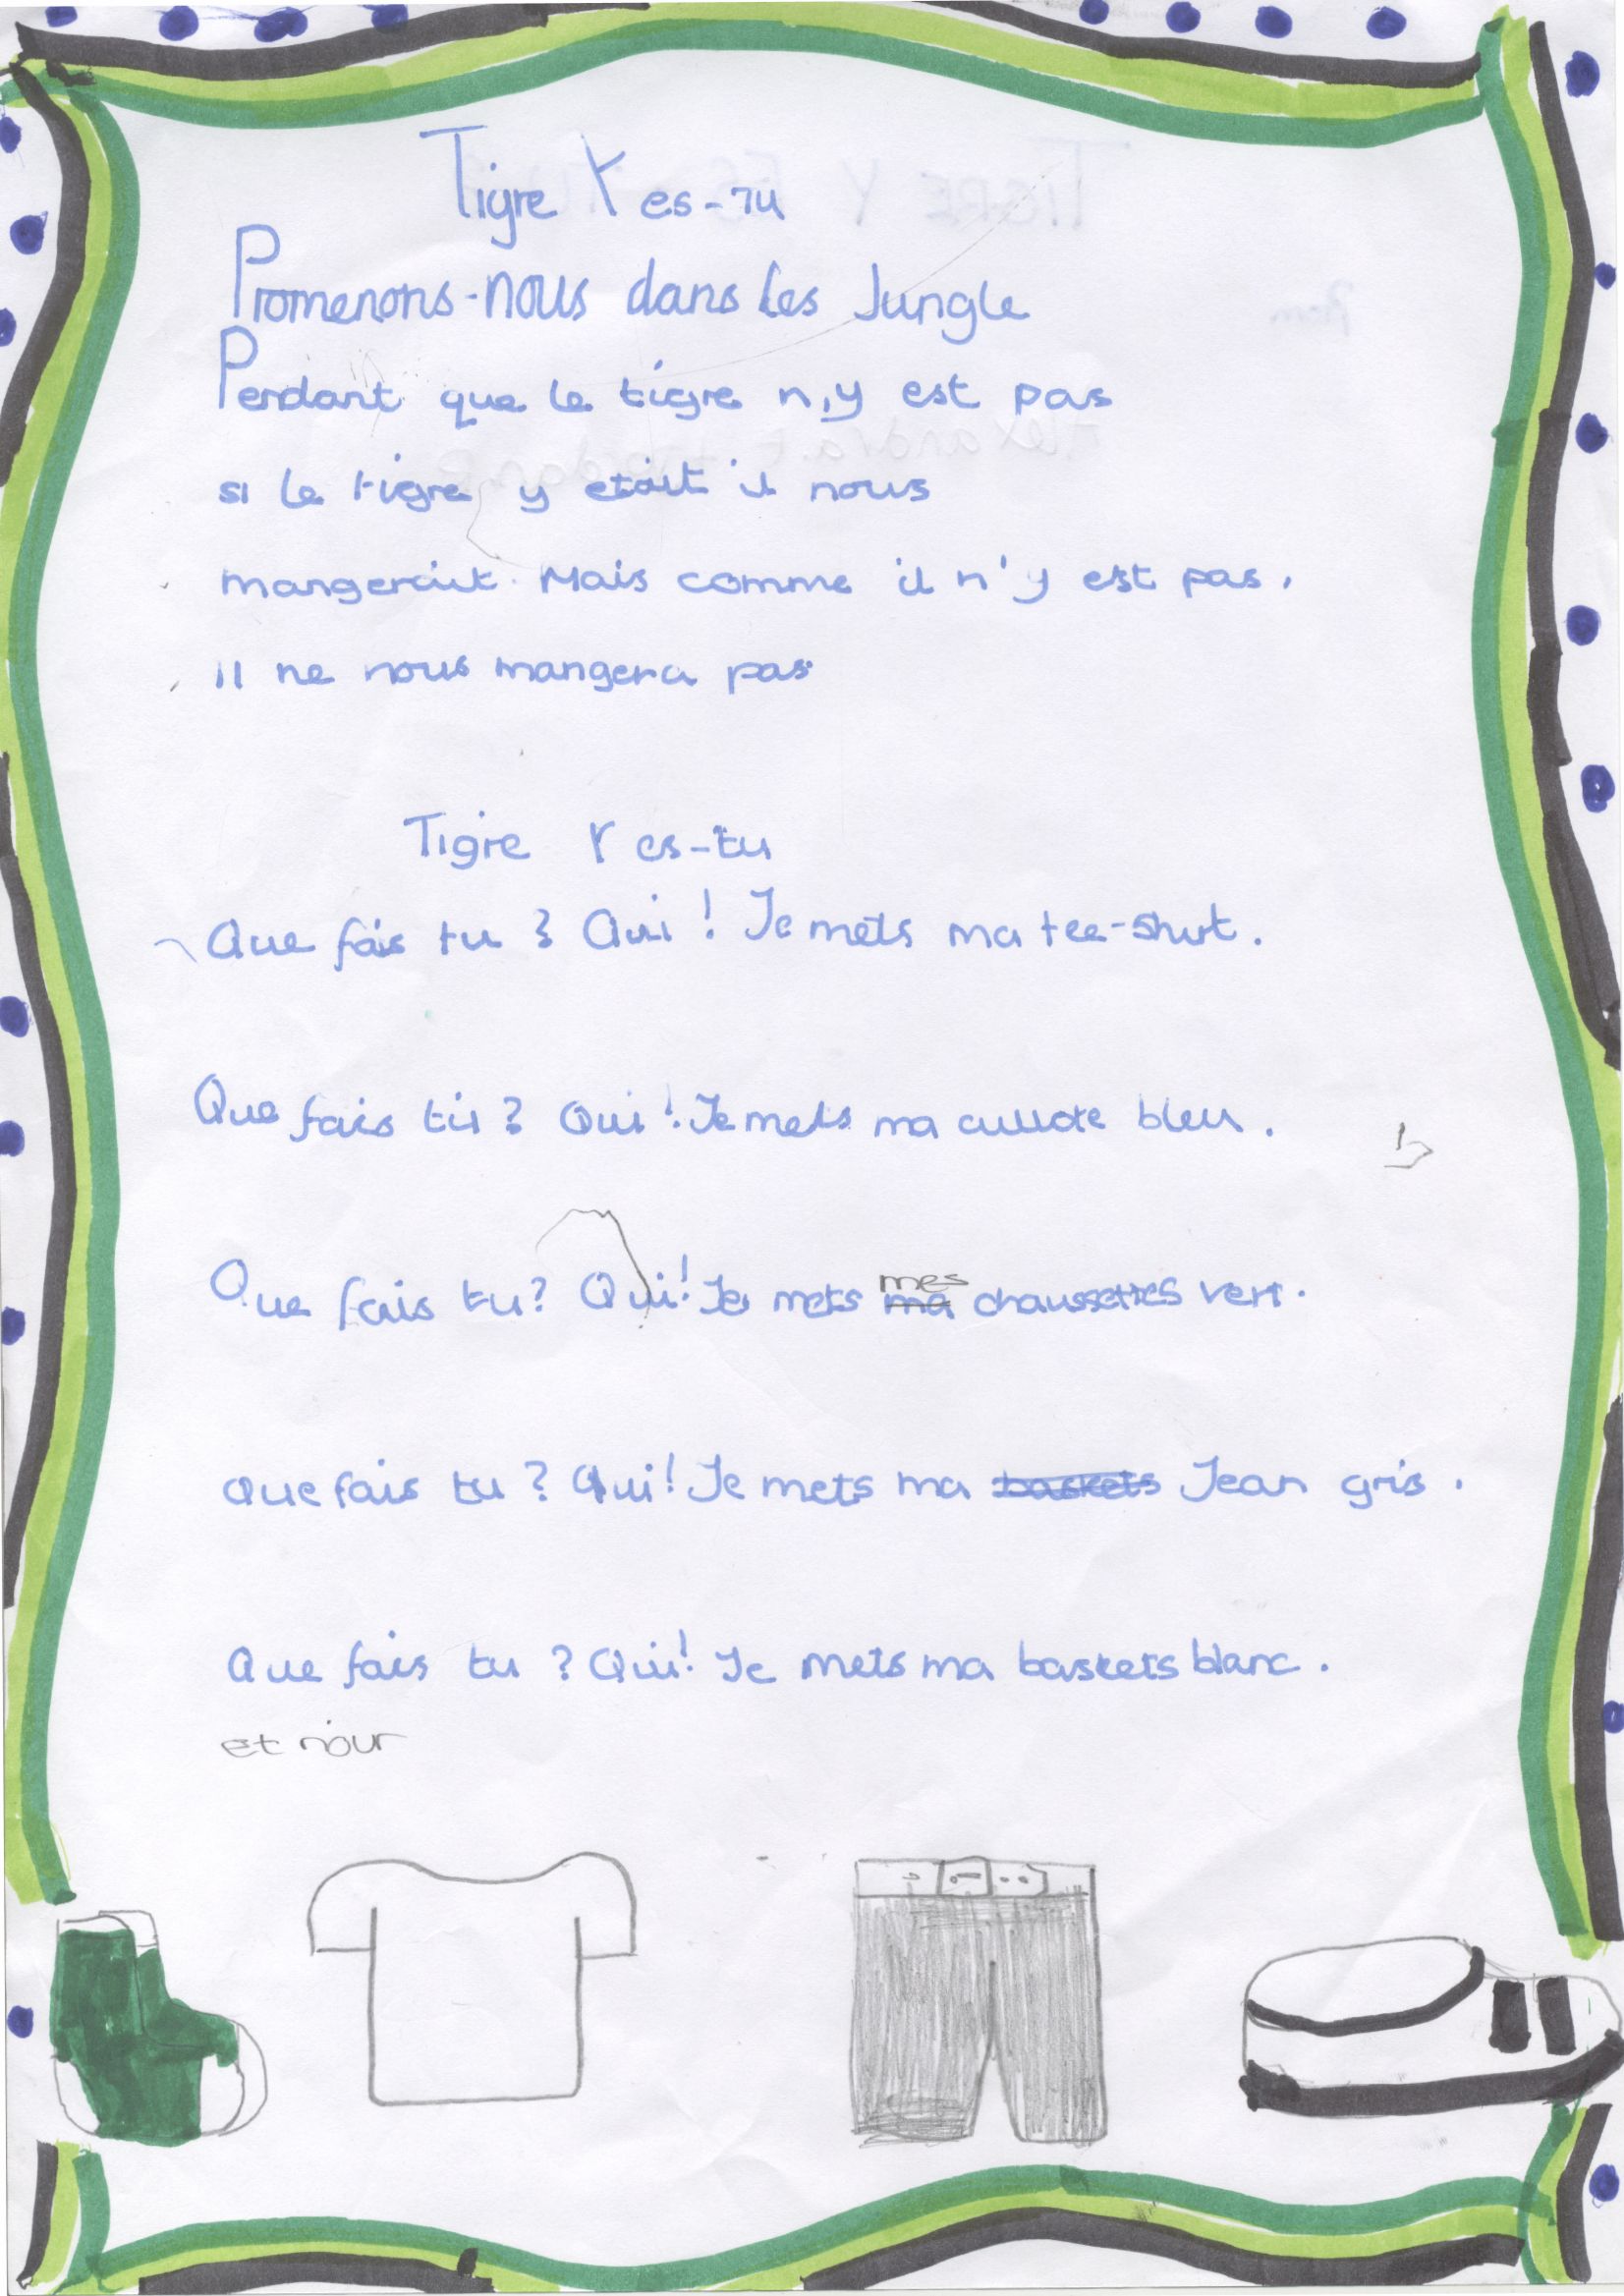 Tigre Y es-tu
Promenons-nous dans les Jungle
Pendant que le tigre n,y est pas
si le tigre y etait il nous
mangerait. Mais comme il n'y est pas,
il ne nous mangera pas
Tigre Y es-tu
Que fais tu ? Oui ! Je mets ma tee-shirt.
Que fais tu ? Oui ! Je mets ma cullote bleu.
Que fais tu? Oui! Je mets mes
ma chaussettes vert.
Que fais tu ? Oui! Je mets ma baskets Jean gris.
Que fais tu ? Oui! Je mets ma baskets blanc.
et noir